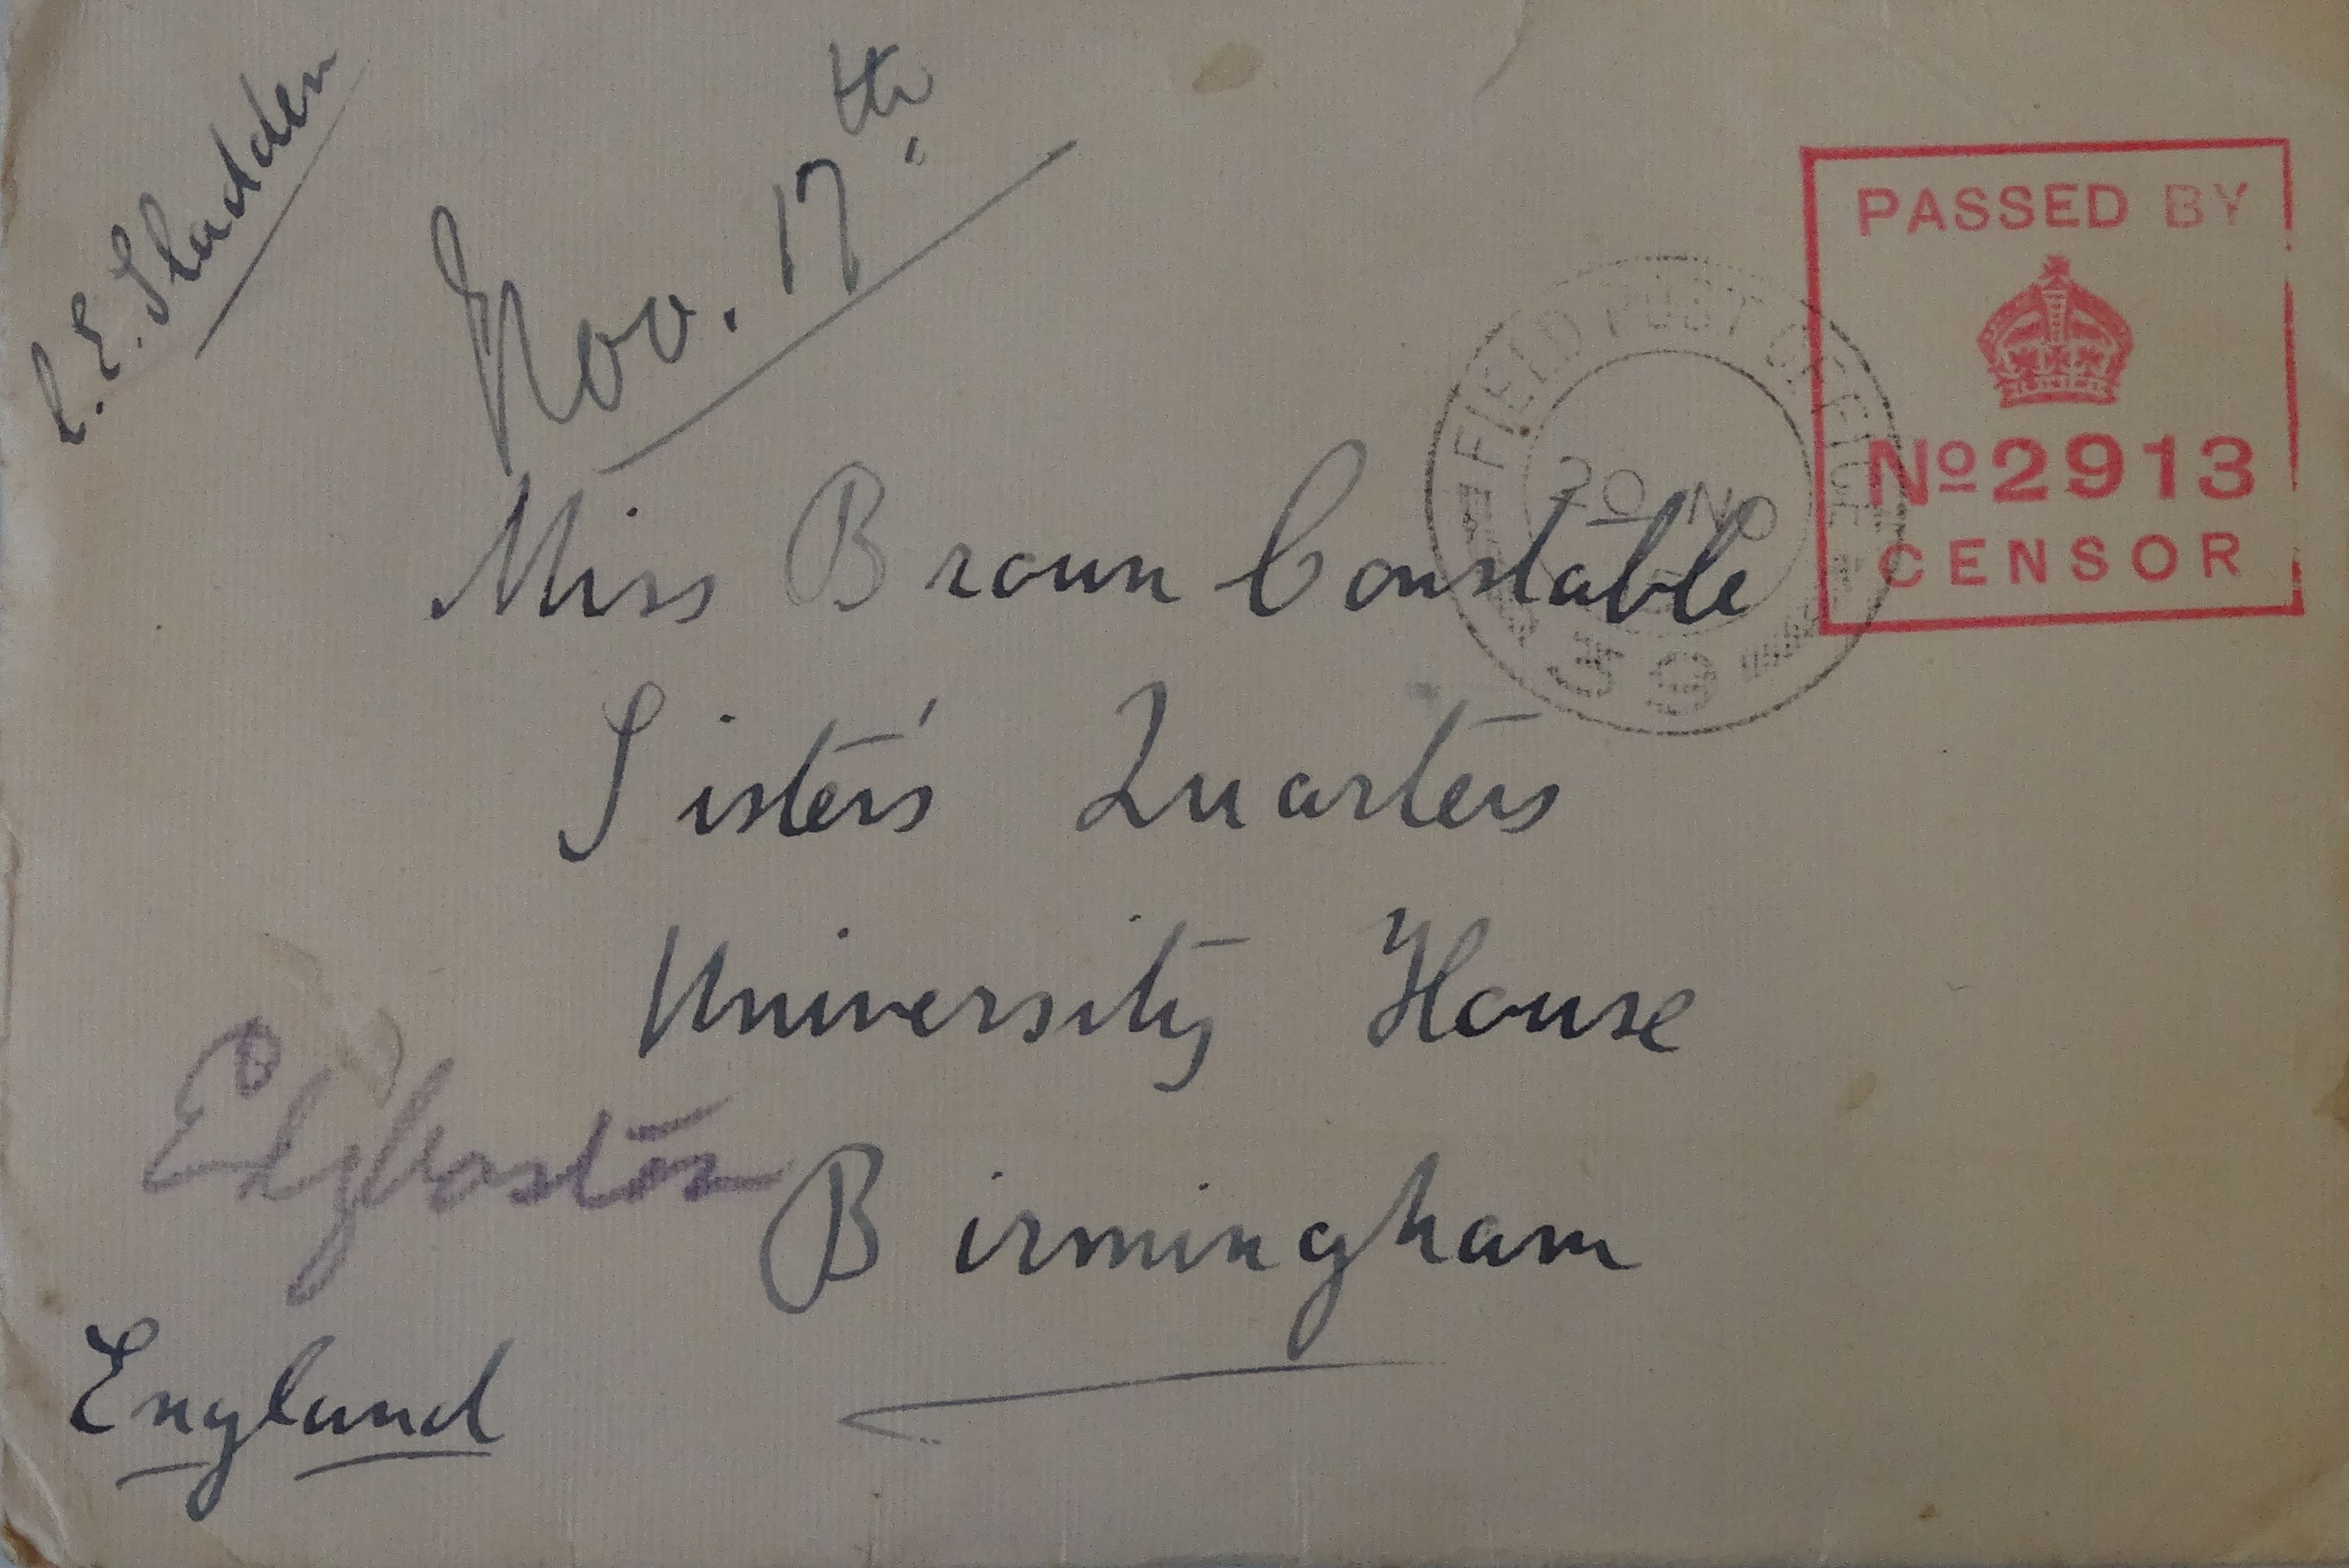 C. E. Sladden
Nov. 17th
PASSED BY
No 2913
CENSOR
FIELD POST OFFICE
20 NO
Miss Brown Constable
Sisters' Quarters
University House
Edgbaston
Birmingham
England